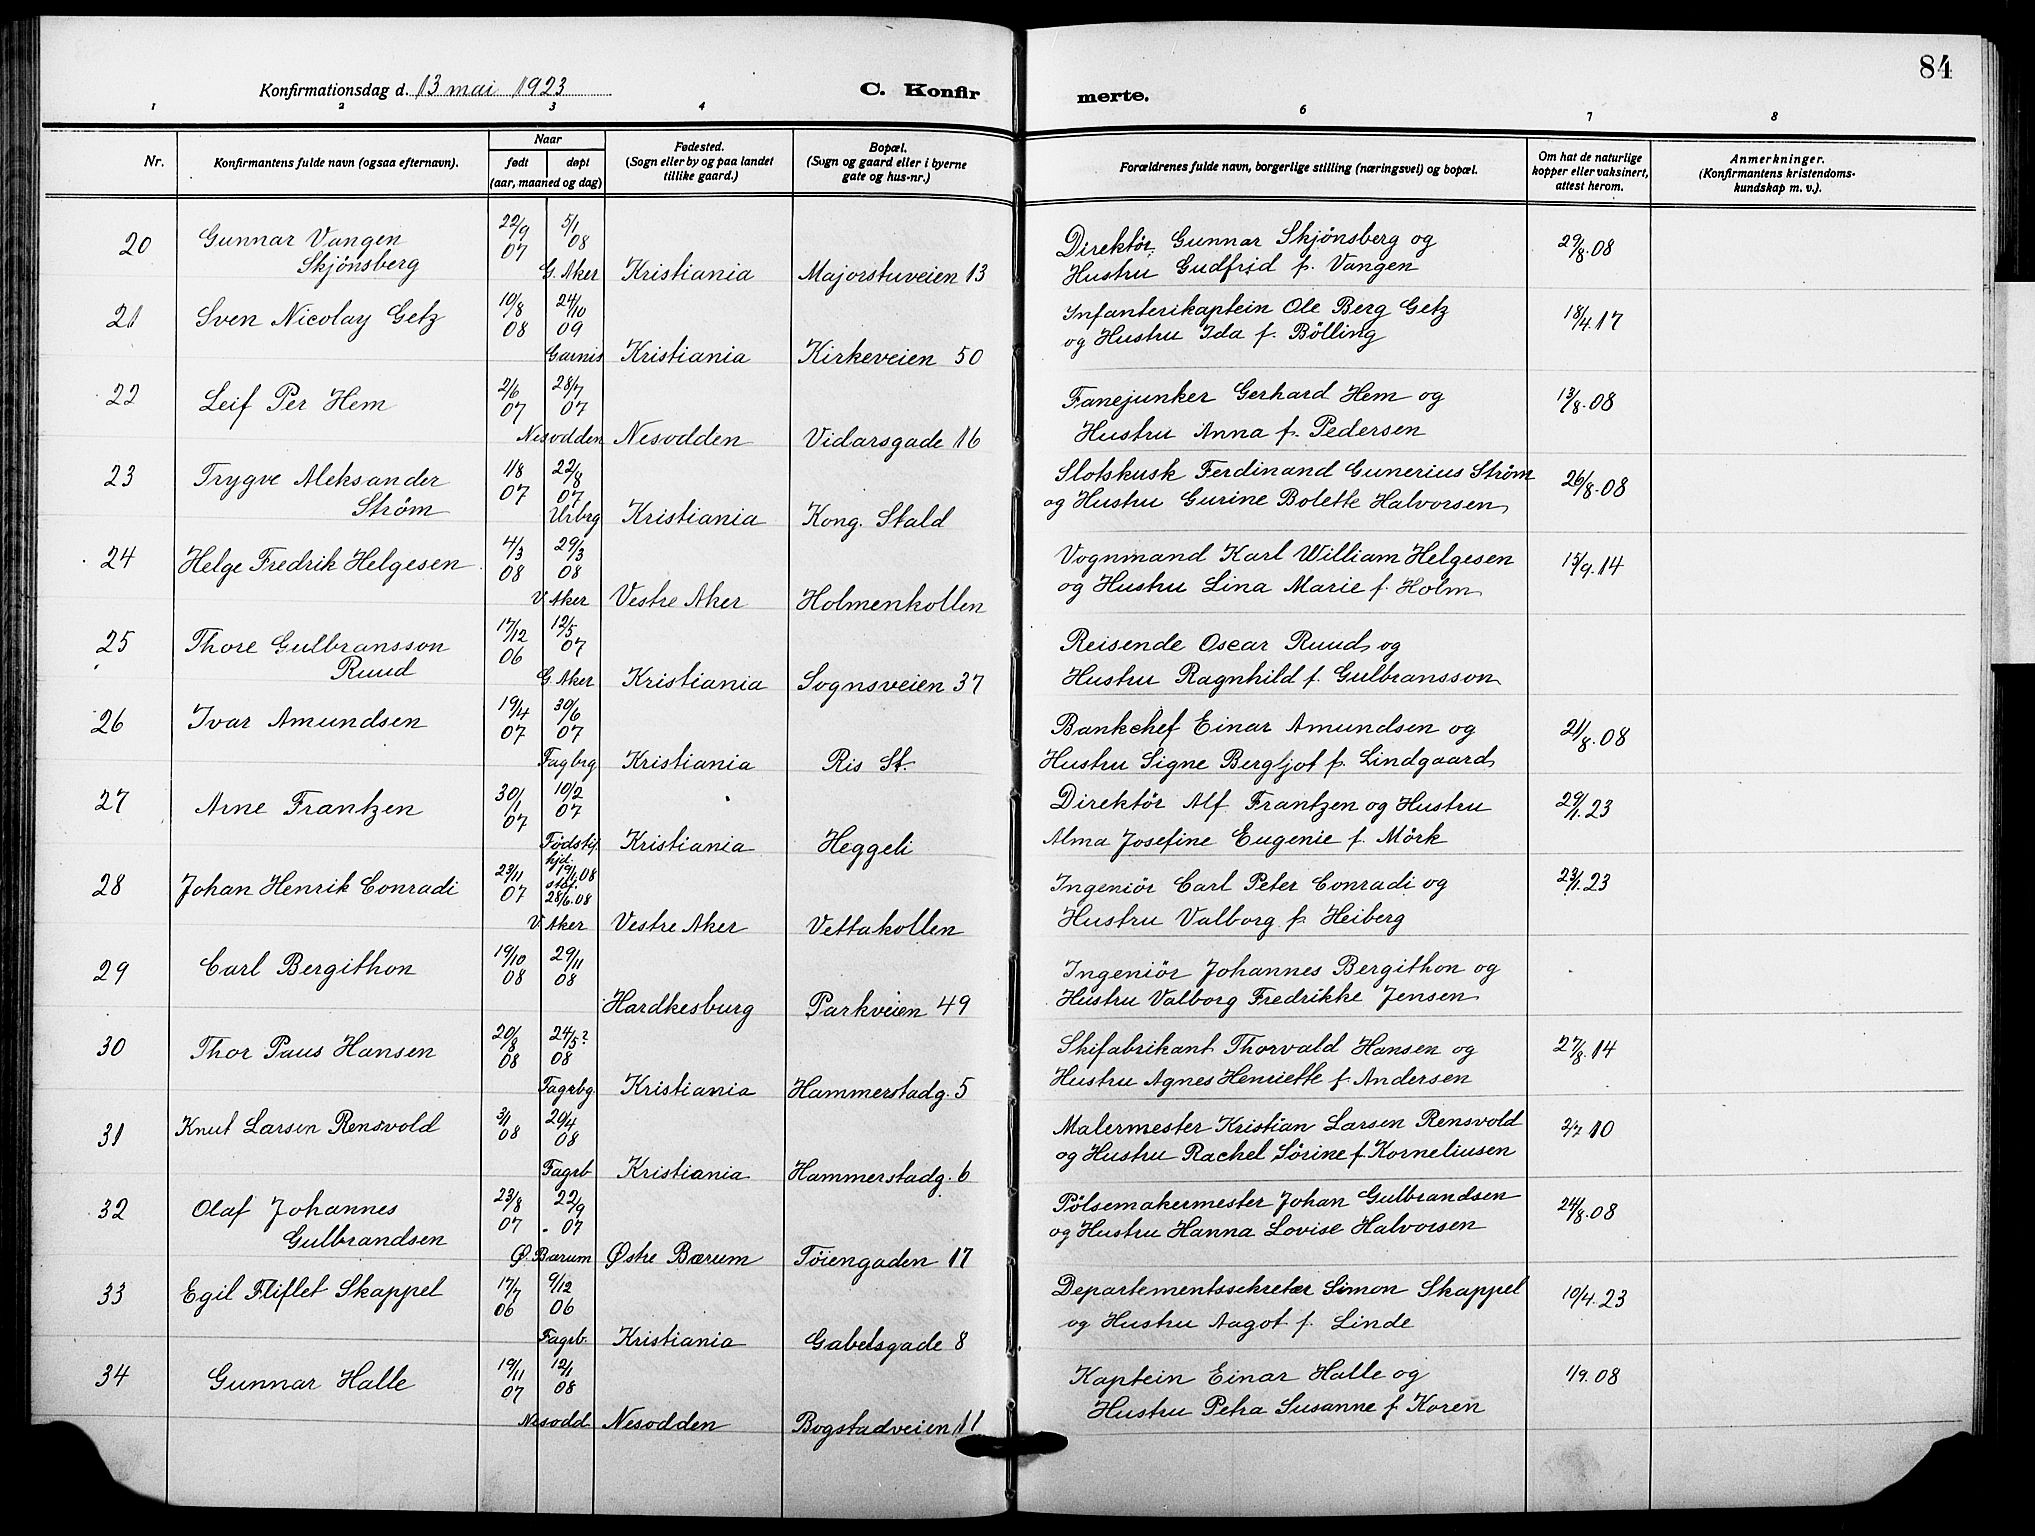 84
Konfirmationsdag d. 13 mai 1923
C. Konfir
merte.
1 2 3 4 6 7 8
Nr.
Konfirmantens fulde navn (ogsaa efternavn).
Naar
født døpt
(aar, maaned og dag)
Fødested.
(Sogn eller by og paa landet
tillike gaard.)
Bopæl.
(Sogn og gaard eller i byerne
gate og hus-nr.)
Forældrenes fulde navn, borgerlige stilling (næringsvei) og bopæl.
Om hat de naturlige
kopper eller vaksinert,
attest herom.
Anmerkninger.
(Konfirmantens kristendoms-
kundskap m. v.).
20 Gunnar Vangen 22/9 5/1 Direktör Gunnar Skjönsberg og 29/8.08
Skjönsberg 07 08 Hustru Gudfrid f. Vangen
G. Aker Kristiania Majorstuveien 13
21 Sven Nicolay Getz 10/8 24/10 Infanterikaptein Ole Berg Getz 18/4.17
08 09 og Hustru Ida f. Bölling
Garnis Kristiania Kirkeveien 50
22 Leif Per Hem 2/6 28/7 Fanejunker Gerhard Hem og 13/8.08
07 07 Hustru Anna f. Pedersen
Nesodden Nesodden Vidarsgade 16
23 Trygve Aleksander 1/8 22/8 Slotskusk Ferdinand Gunerius Ström 26/8.08
Ström 07 07 og Hustru Gurine Bolette Halvorsen
Urbrg Kristiania Kong. Stald
24 Helge Fredrik Helgesen 4/3 29/3 Vognmand Karl William Helgesen 15/9.14
08 08 og Hustru Lina Marie f. Holm
V. Aker Vestre Aker Holmenkollen
25 Thore Gulbransson 17/12 12/5 Reisende Oscar Ruud og
Ruud 06 07 Hustru Ragnhild f. Gulbransson
G. Aker Kristiania Sognsveien 37
26 Ivar Amundsen 19/4 30/6 Bankchef Einar Amundsen og 21/8.08
07 07 Hustru Signe Bergljot f. Lindgaard
Fagbrg Kristiania Ris St.
27 Arne Frantzen 30/1 10/2 Direktör Alf Frantzen og Hustru 29/1.23
07 07 Alma Josefine Eugenie f. Mörk
Födstif. Kristiania Heggeli
28 Johan Henrik Conradi 23/11 hjd. 19/1.08 Ingeniör Carl Peter Conradi og 23/1.23
07 stdf. 28/6.08 Hustru Valborg f. Heiberg
V. Aker Vestre Aker Vettakollen
29 Carl Bergithon 19/10 29/11 Ingeniör Johannes Bergithon og
08 08 Hustru Valborg Fredrikke Jensen
Hardkesburg Parkveien 49
30 Thor Paus Hansen 20/8 24/5? Skifabrikant Thorvald Hansen og 27/8.14
08 08 Hustru Agnes Henriette f. Andersen
Fagrbg. Kristiania Hammerstadg. 5
31 Knut Larsen Rensvold 3/1 20/4 Malermester Kristian Larsen Rensvold 2/7 10
08 08 og Hustru Rachel Sörine f. Korneliusen
Fagrb Kristiania Hammerstadg. 6
32 Olaf Johannes 23/8 22/9 Pölsemakermester Johan Gulbrandsen 24/8.08
Gulbrandsen 07 07 og Hustru Hanna Lovise Halvorsen
Ø. Bærum Østre Bærum Töiengaden 17
33 Egil Fliflet Skappel 17/7 9/12 Departementssekretær Simon Skappel 10/4.23
06 06 og Hustru Aagot f. Linde
Fagrb. Kristiania Gabelsgade 8
34 Gunnar Halle 19/11 12/1 Kaptein Einar Halle og 1/9.08
07 08 Hustru Petra Susanne f. Koren
Nesodd. Nesodden Bogstadveien 11